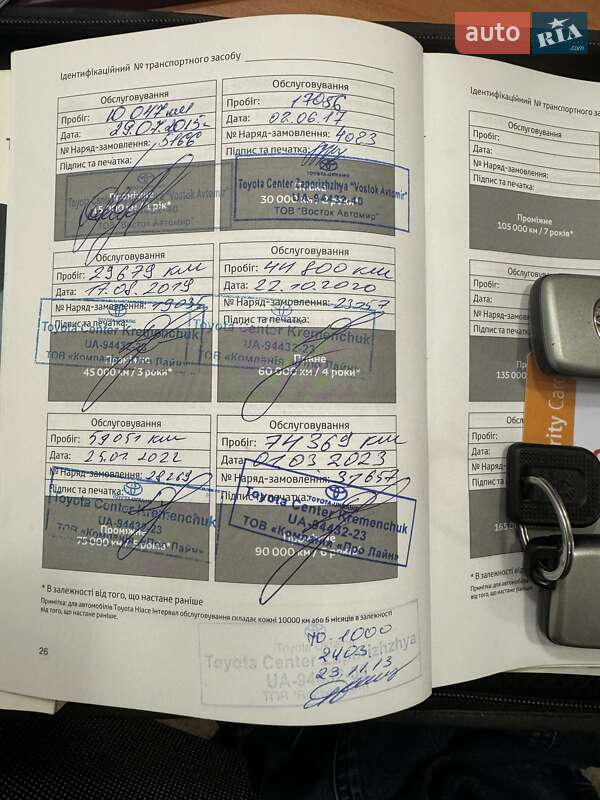 auto RIA .com
Ідентифікаційний № транспортного засобу
Обслуговування
Пробіг: 10 047 км
Дата: 29.07.2015
№ Наряд-замовлення: 3166
Підпис та печатка:
Toyota Center Zaporizhzhya "Vostok Avtomir"
Проміжне
15 000 км / 1 рік*
UA-94432-40
ТОВ "Восток Автомир"
Обслуговування
Пробіг: 17056
Дата: 02.06.17
№ Наряд-замовлення: 4083
Підпис та печатка:
TOYOTA-UKRAINE
Toyota Center Zaporizhzhya "Vostok Avtomir"
30 000 км
UA-94432-40
ТОВ "Восток Автомир"
Обслуговування
Пробіг: 29679 км
Дата: 17.08.2019
№ Наряд-замовлення: 19036
Підпис та печатка:
Toyota Center Kremenchuk
UA-94432-23
ТОВ «Компанія «Про Лайн»
45 000 км / 3 роки*
Обслуговування
Пробіг: 44 800 км
Дата: 22.10.2020
№ Наряд-замовлення:
Підпис та печатка:
Toyota Center Kremenchuk
UA-94432-23
ТОВ «Компанія «Про Лайн»
60 000 км / 4 роки*
Обслуговування
Пробіг: 59051 км
Дата: 25.01.2022
№ Наряд-замовлення: 28269
Підпис та печатка:
Toyota Center Kremenchuk
UA-94432-23
Проміжне
ТОВ «Компанія «Про Лайн»
75 000 км / 5 років*
Обслуговування
Пробіг: 74369 км
Дата: 01.03 2023
№ Наряд-замовлення: 31657
Підпис та печатка:
TOYOTA-UKRAINE
Toyota Center Kremenchuk
UA-94432-23
ТОВ «Компанія «Про Лайн»
90 000 км / 6
* В залежності від того, що настане раніше
Примітка: для автомобілів Toyota Hiace інтервал обслуговування складає кожні 10000 км або 6 місяців в залежності
від того, що настане раніше.
26
ТО-1000
2403
23.11.13
Toyota Center Zaporizhzhya
Ідентифікаційний № транспортного засо
Обслуговування
Пробіг:
Дата:
№ Наряд-замовлення:
Підпис та печатка:
Проміжне
105 000 км / 7 років*
Обслугов
Пробіг:
Дата:
№ Наряд-замовлен
Підпис та печатка:
135 000
Обслуг
Пробіг:
Дата:
№ Наряд-замов
Підпис та печат
* В залежності від
Примітка: для автомобілів
від того, що настане раніше.